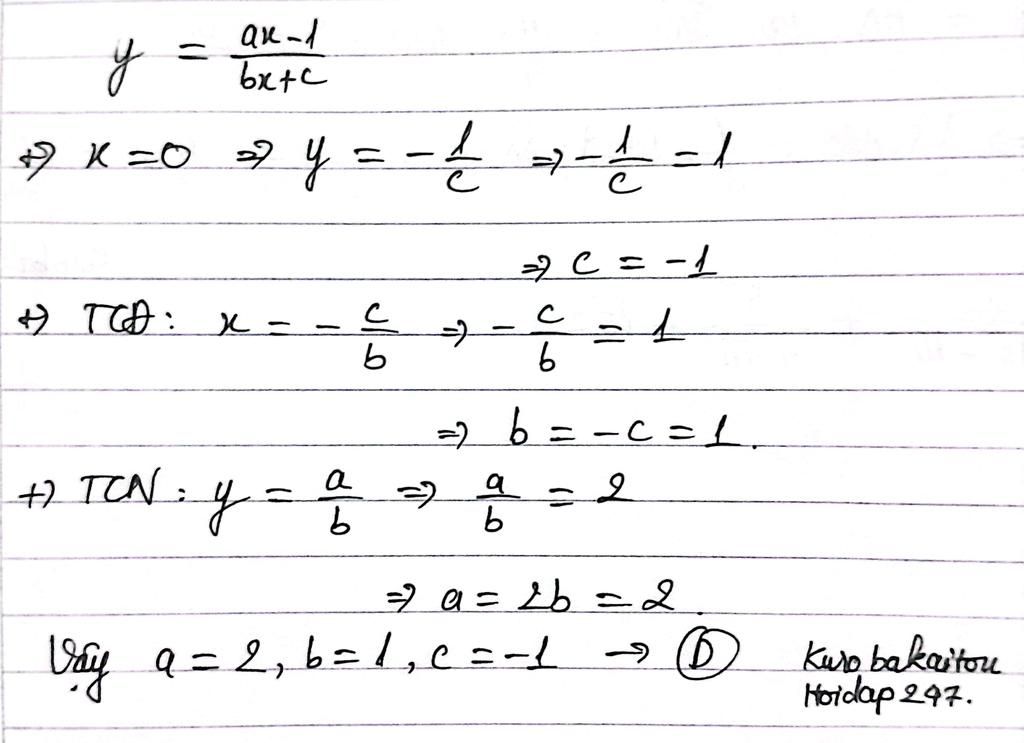 y = \frac{ax-1}{bx+c}
+) x = 0 ⇒ y = -\frac{1}{c} ⇒ -\frac{1}{c} = 1
⇒ c = -1
+) TCĐ: x = -\frac{c}{b} ⇒ -\frac{c}{b} = 1
⇒ b = -c = 1.
+) TCN: y = \frac{a}{b} ⇒ \frac{a}{b} = 2
⇒ a = 2b = 2.
Vậy a = 2, b = 1, c = -1 → Ⓓ
Kuro bakaitou
Hoidap247.